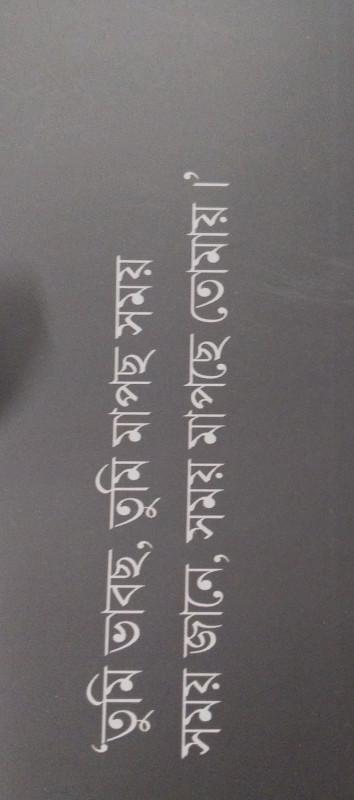 ‘তুমি ভাবছ, তুমি মাপছ সময়
সময় জানে, সময় মাপছে তোমায়।’